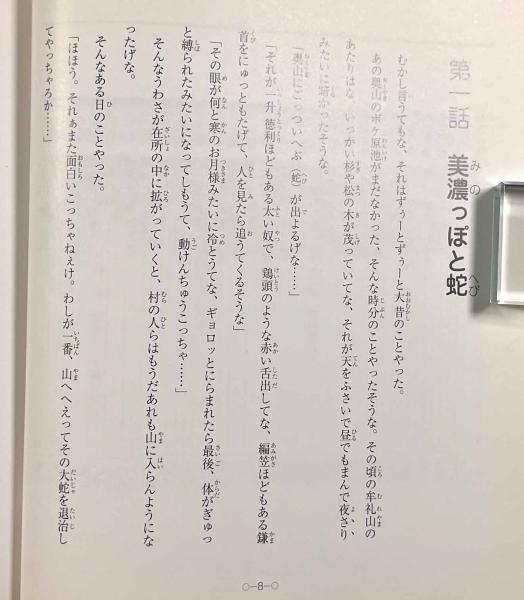 第一話　美濃っぽと蛇
むかし言うてもな、それはずぅーとずぅーと大昔のことやった。
あの奥山のボケ原池がまだなかった、そんな時分のことやったそうな。その頃の牟礼山の
あたりはな、いっかい杉や松の木が茂っていてな、それが天をふさいで昼でもまんで夜さり
みたいに暗かったそうな。
「奥山にこっついへぶ（蛇）が出よるげな……」
「それが一升徳利ほどもある太い奴で、鶏頭のような赤い舌出してな、編笠ほどもある鎌
首をにゅっともたげて、人を見たら追うてくるそうな」
「その眼が何と寒のお月様みたいに冷とうてな、ギョロッとにらまれたら最後、体がぎゅっ
と縛られたみたいになってしもうて、動けんちゅうこっちゃ……」
そんなうわさが在所の中に拡がっていくと、村の人らはもうだあれも山に入らんようにな
ったげな。
そんなある日のことやった。
「ほほう。それぁまた面白いこっちゃねぇけ。わしが一番、山へへえってその大蛇を退治し
てやっちゃろか……」
○—8—○